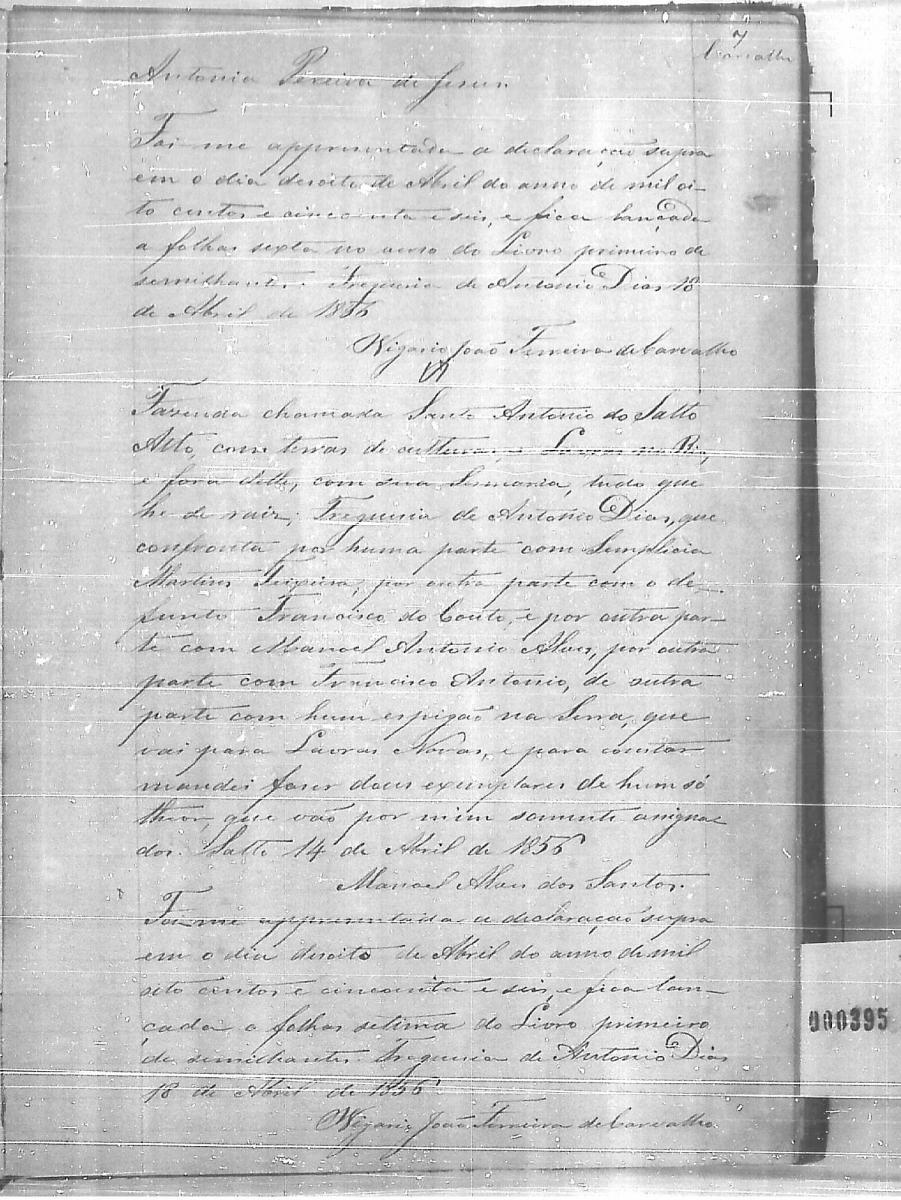 7
Carvalho
Antonia Pereira de Jesus.
Foi me appresentada a declaração supra
em o dia desoito de Abril do anno de mil oi-
to centos e cincoenta e seis, e fica lançada
a folhas sexta no verso do Livro primeiro de
semilhantes. Freguesia de Antonio Dias 18
de Abril de 1856
Vigario João Ferreira de Carvalho
Fazenda chamada Santo Antonio do Salto
Alto, com terras de cultura, e Lavras no Rio,
e fora delle, com sua Sesmaria, tudo que
he de raiz; Freguesia de Antonio Dias, que
confronta por huma parte com Simplicia
Martins Teixeira, por outra parte com o de-
funto Francisco do Couto, e por outra par-
te com Manoel Antonio Alves, por outra
parte com Francisco Antonio, de outra
parte com hum espigão na Serra, que
vai para Lavras Novas, e para constar
mandei faser dous exemplares de hum só
theor, que vão por mim somente assigna-
dos. Salto 14 de Abril de 1856
Manoel Alves dos Santos.
Foi me appresentada a declaração supra
em o dia desoito de Abril do anno de mil
oito centos e cincoenta e seis, e fica lan-
çada a folhas setima do Livro primeiro
de semilhantes. Freguesia de Antonio Dias
18 de Abril de 1856.
Vigario João Ferreira de Carvalho
000395